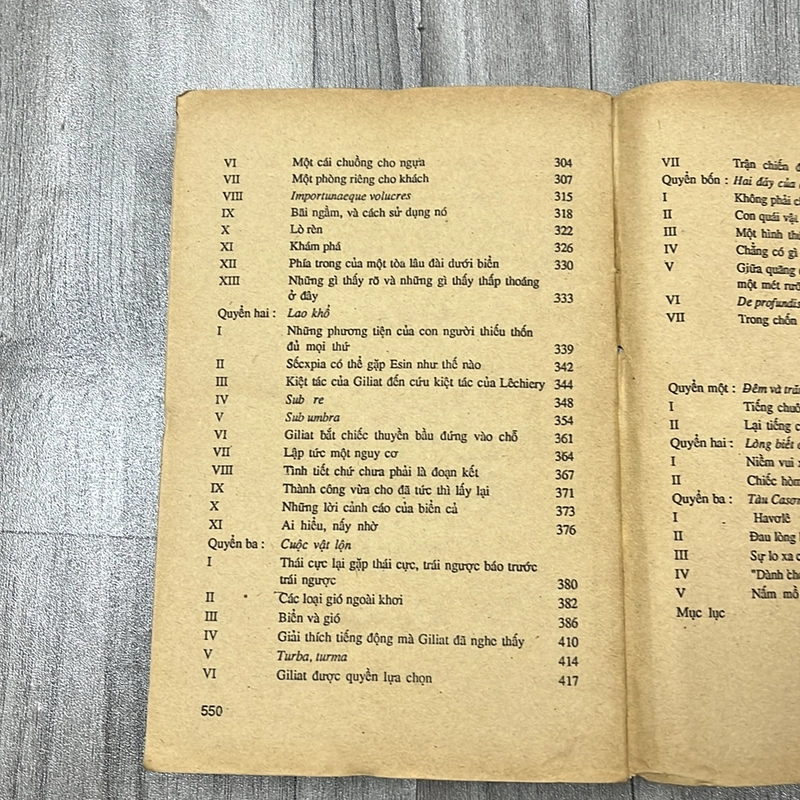 VI Một cái chuồng cho ngựa 304
VII Một phòng riêng cho khách 307
VIII Importunaeque volucres 315
IX Bãi ngầm, và cách sử dụng nó 318
X Lò rèn 322
XI Khám phá 326
XII Phía trong của một tòa lâu đài dưới biển 330
XIII Những gì thấy rõ và những gì thấy thấp thoáng
ở đây 333
Quyển hai : Lao khổ
I Những phương tiện của con người thiếu thốn
đủ mọi thứ 339
II Sếcxpia có thể gặp Esin như thế nào 342
III Kiệt tác của Giliat đến cứu kiệt tác của Lêchiery 344
IV Sub re 348
V Sub umbra 354
VI Giliat bắt chiếc thuyền bầu đứng vào chỗ 361
VII Lập tức một nguy cơ 364
VIII Tình tiết chứ chưa phải là đoạn kết 367
IX Thành công vừa cho đã tức thì lấy lại 371
X Những lời cảnh cáo của biển cả 373
XI Ai hiểu, nấy nhờ 376
Quyển ba : Cuộc vật lộn
I Thái cực lại gặp thái cực, trái ngược báo trước
trái ngược 380
II Các loại gió ngoài khơi 382
III Biển và gió 386
IV Giải thích tiếng động mà Giliat đã nghe thấy 410
V Turba, turma 414
VI Giliat được quyền lựa chọn 417
550
VII Trận chiến
Quyển bốn : Hai đáy của
I Không phải
II Con quái vật
III Một hình
IV Chẳng có gì
V Giữa quãng
một mét rưỡ
VI De profundis
VII Trong chốn
Quyển một : Đêm và
I Tiếng
II Lại tiếng
Quyển hai : Lòng biết
I Niềm vui
II Chiếc hòm
Quyển ba : Tàu
I Havơlê
II Đau lòng
III Sự lo xa
IV "Dành
V Nấm mồ
Mục lục